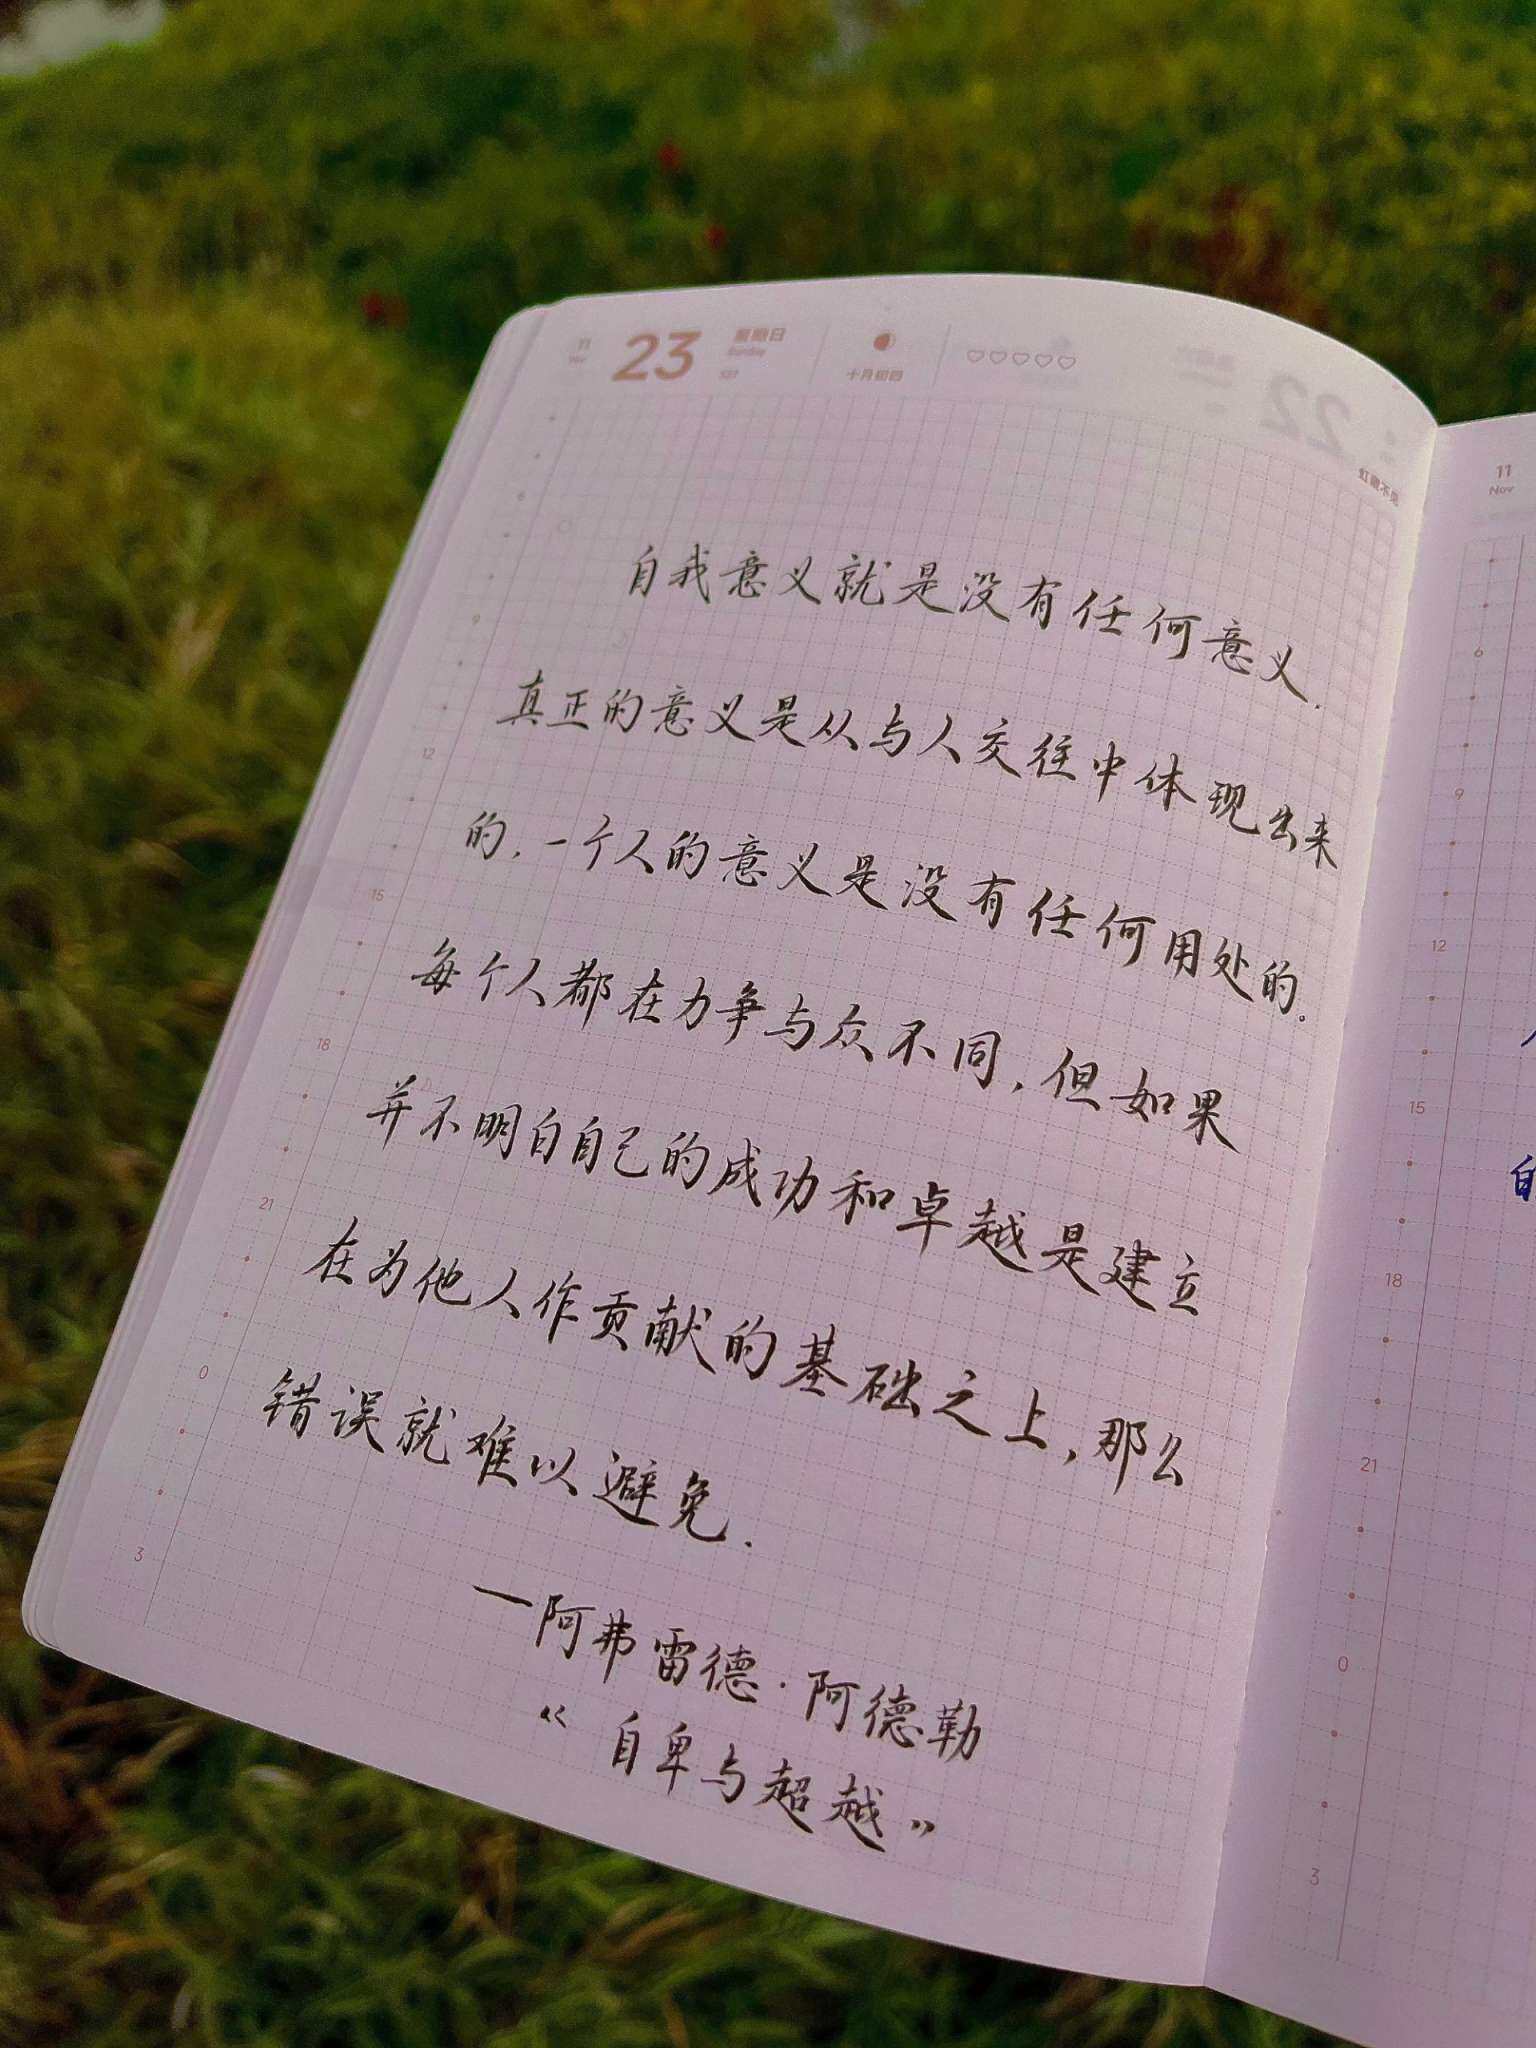 11 23 星期日 ♡♡♡♡♡
Nov Sunday 327 十月初四
22
虹藏不见
自我意义就是没有任何意义.
真正的意义是从与人交往中体现出来
的,一个人的意义是没有任何用处的。
每个人都在力争与众不同,但如果
并不明白自己的成功和卓越是建立
在为他人作贡献的基础之上,那么
错误就难以避免.
—阿弗雷德·阿德勒
《自卑与超越》
6
9
12
15
18
21
0
3
11
Nov
6
9
12
15
18
21
0
3